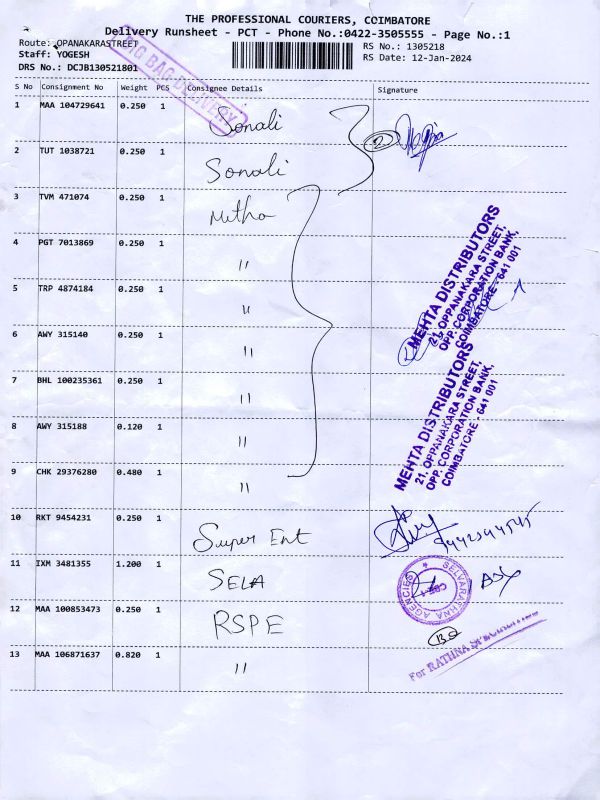 THE PROFESSIONAL COURIERS, COIMBATORE
Delivery Runsheet - PCT - Phone No.:0422-3505555 - Page No.:1
Route: OPANAKARASTREET
RS No.: 1305218
Staff: YOGESH
RS Date: 12-Jan-2024
DRS No.: DCJB130521801
BAG DELIVERY
S No Consignment No Weight PCS Consignee Details Signature
1 MAA 104729641 0.250 1 Sonali
2 TUT 1038721 0.250 1 Sonali
3 TVM 471074 0.250 1 Mitha
4 PGT 7013869 0.250 1 "
5 TRP 4874184 0.250 1 "
6 AWY 315140 0.250 1 "
7 BHL 100235361 0.250 1 "
8 AWY 315188 0.120 1 "
9 CHK 29376280 0.480 1 "
MEHTA DISTRIBUTORS
21, OPPANAKARA STREET,
OPP. CORPORATION BANK,
COIMBATORE - 641 001
MEHTA DISTRIBUTORS
21, OPPANAKARA STREET,
OPP. CORPORATION BANK,
COIMBATORE - 641 001
10 RKT 9454231 0.250 1 Super Ent
11 IXM 3481355 1.200 1 SELA
SELVARATHNA AGENCIES
12 MAA 100853473 0.250 1 RSPE
13 MAA 106871637 0.820 1 "
For RATHNA